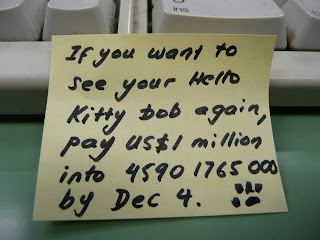 ins
If you want to
see your Hello
Kitty bob again,
pay US$1 million
into 4590 1765 000
by Dec 4. !!!